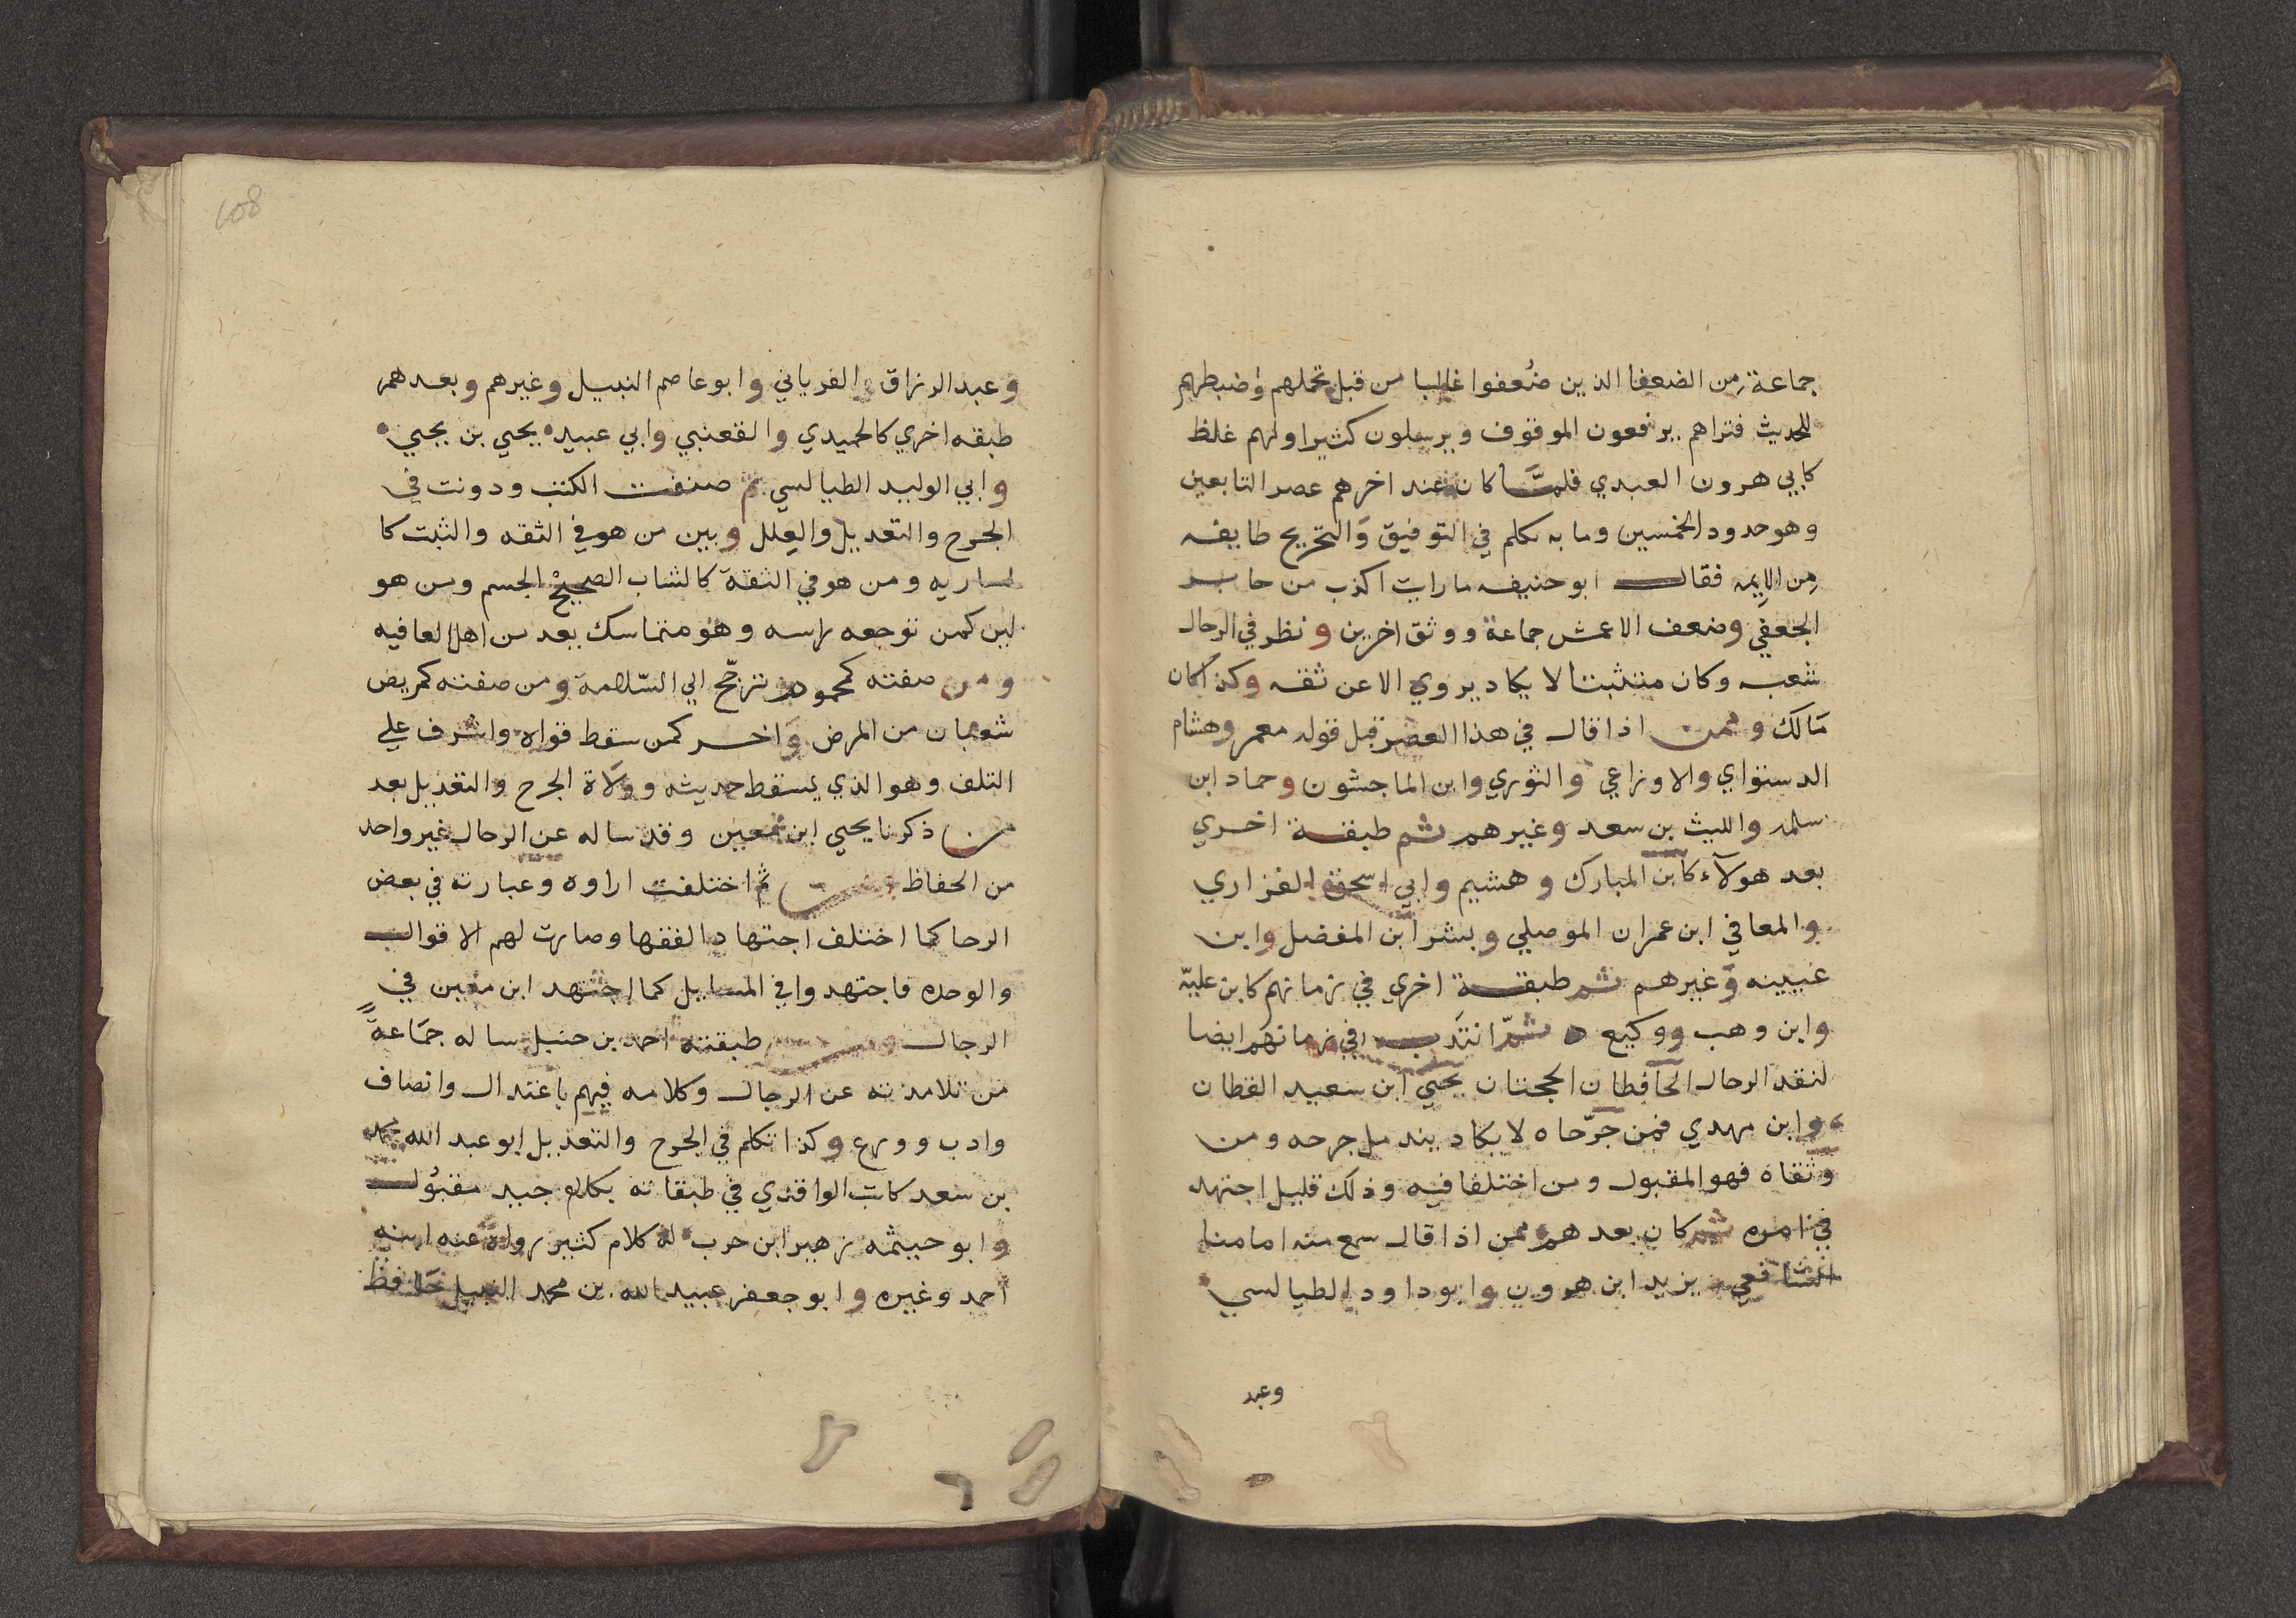 جماعة من الضعفا الذين ضُعفوا غالبا من قبل تحملهم وضبطهم
للحديث فتراهم يرفعون الموقوف ويرسلون كثيرا ولهم غلظ
كابي هرون العبدي فلمَّا كان عند اخرهم عصر التابعين
وهو حدود الخمسين وما به تكلم في التوفيق والتجريح طايفه
مِن الايمه فقال ابو حنيفه ما رايت اكذب من جابر
الجعفي وضعف الاعمش جماعة ووثق اخرين ونظر في الرجال
شعبه وكان متثبتا لا يكاد يروي الا عن ثقه وكذا كان
مَالك وممن اذا قال في هذا العصر قبل قوله معمر وهشام
الدستواي والاوزاعي والثوري وابن الماجشون وحماد ابن
سلمه والليث بن سعد وغيرهم ثم طبقة اخري
بعد هولآء كابن المبارك وهشيم وابي اسحق الفزاري
والمعافي ابن عمران الموصلي وبشر ابن المفضل وابن
عيينه وغيرهم ثم طبقة اخري في زمانهم كابن عليّه
وابن وهب ووكيع ثمّ انتدب في زمانهم ايضا
لنقد الرجال الحافطان الحجتان يحيي ابن سعيد القطان
وابن مهدي فمن جرّحاه لا يكاد يندمل جرحه ومن
وثقاه فهو المقبول ومن اختلفا فيه وذلك قليل اجتهد
في امره ثم كان بعدهم ممن اذا قال سمع منه امامنا
الشافعي يزيد ابن هرون وابو داود الطيالسي
وعبد
108
وعبد الرزاق والفريابي وابو عاصم النبيل وغيرهم وبعدهم
طبقه اخري كالحميدي والقعنبي وابي عبيد يحيي بن يحيي
وابي الوليد الطيالسي ثم صنفت الكتب ودونت في
الجرح والتعديل والعلل وبين من هو في الثقه والثبت كا
لساريه ومن هو في الثقة كالشاب الصحيحْ الجسم ومن هو
لين كمن توجعه راسه وهو متماسك يعد من اهل العافيه
ومن صفته كمحموم وترجّح الي السّلامة ومن صفته كمريض
شعبان من المرض وَاخر كمن سقط قواه واشرف علي
التلف وهو الذي يسقط حديثه وولَاة الجرح والتعديل بعد
من ذكرنا يحيي ابن معين وقد ساله عن الرجال غير واحد
من الحفاظ ثم اختلفت اراوه وعبارته في بعض
الرحا كما اختلف اجتهاد الفقها وصارت لهم الاقوال
والوحده فاجتهد وافي المسايل كما اجتهد ابن معين في
الرجال طبقته احمد بن حنبل ساله جمَاعةٌ
من تلامذته عن الرجال وكلامه فيهم باعتدال وانصاف
وادب وورع وكذا تكلم في الجرح والتعديل ابو عبد الله محمد
بن سعد كاتب الواقدي في طبقاته بكلام جيد مقبُول
وابو حيثمه زهير ابن حرب له كلام كثير رواه عنه ابنه
احمد وغيره وابو جعفر عبيد الله بن محمد النبيل حَافظ